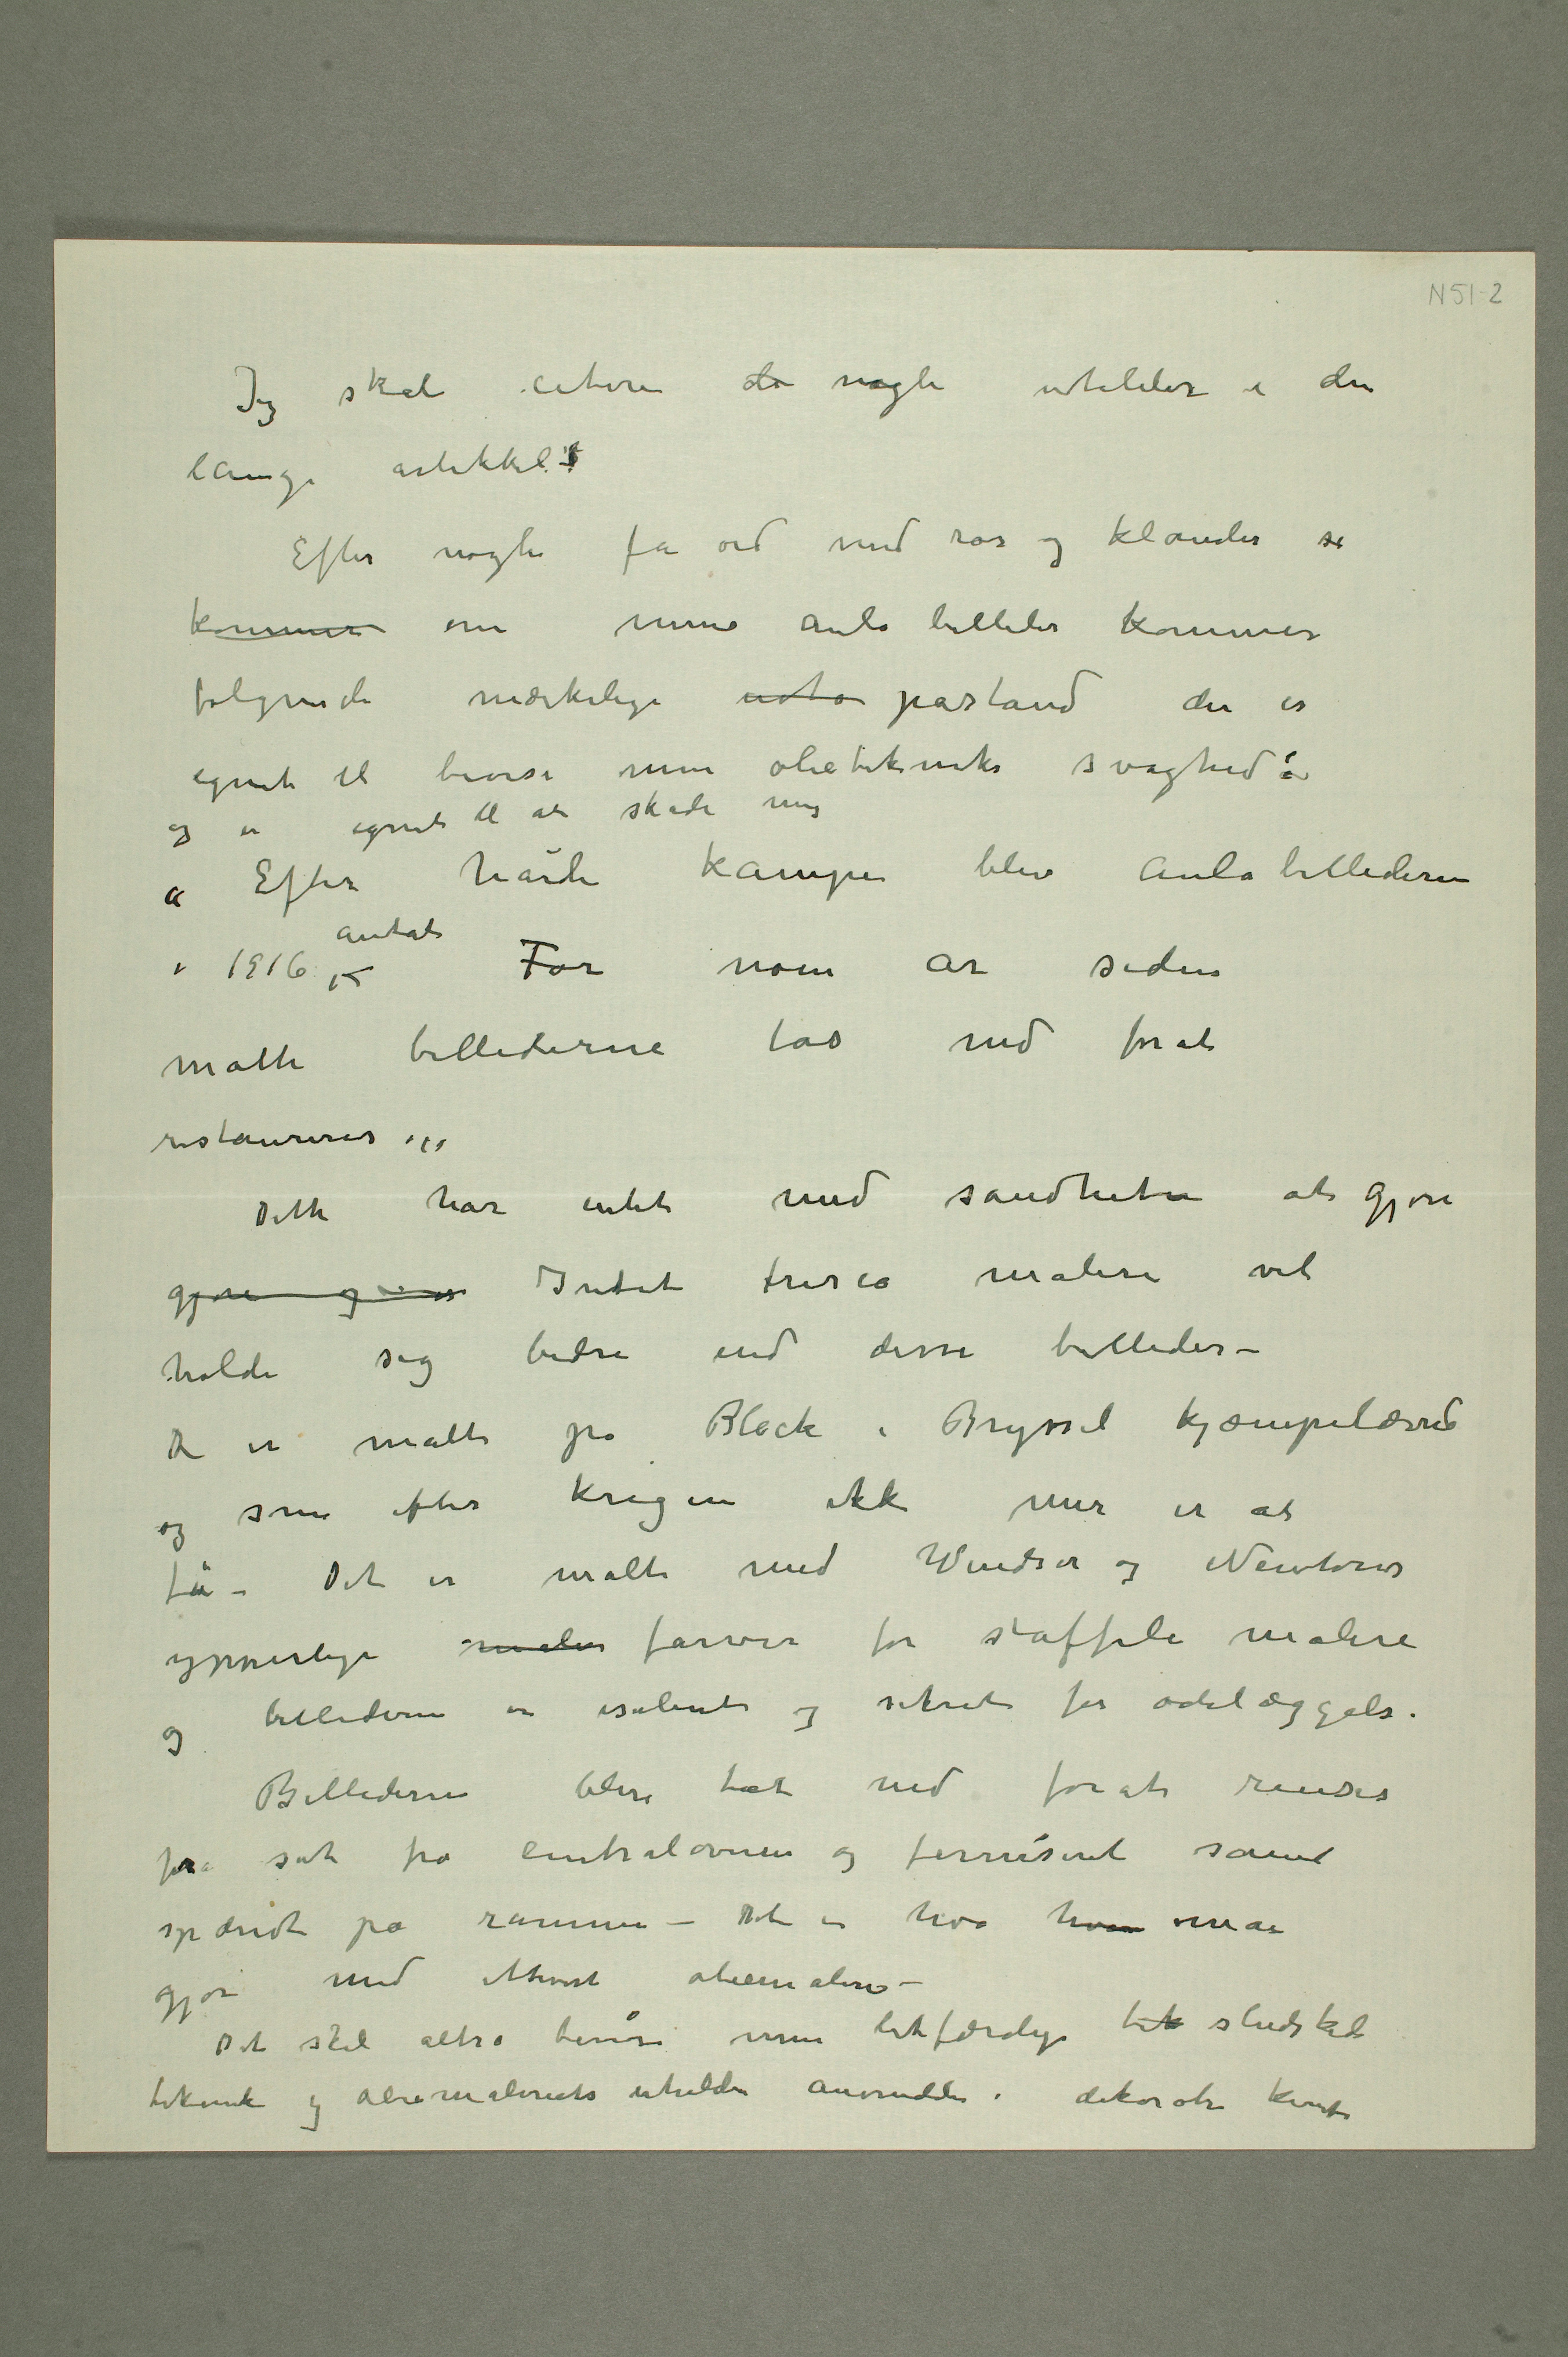 N51-2
Jeg skal citere de nogle uheldige i den
lange artikkel:
Efter nogle få ord med ros og klander så
kommer om mine aula billeder kommer
følgende mærkelige påstand der er
egnet til bevise min olieteknikks svaghed:
og er egnet til at skade mig
« Efter hårde kampe blev Aulabillederne
antat
i 1916. For noen år siden
måtte billederne tas ned forat
restaureres »
Dette har intet med sandheten at gjøre
gjøre og Intet fresco maleri vil
holde sig bedre end disse billeder –
De er malt på Block i Bryssel kjæmpelærred
og som efter krigen ikke mer er at
få – Det er malt med Windsor og Newtons
ypperlige maler farver for staffeli maleri
og billederne er isolert og sikret for ødelæggelse.
Billederne blev tat ned forat renses
fra sot fra centralovnen og ferniseret samt
spændt på rammen – Det er hva hvam man
gjør med ethvert oliemaleri –
Det skal altså bevise min letfærdige tek sludskede
teknik og oliemaleriets uheldige anvendelse i dekorativ kunst